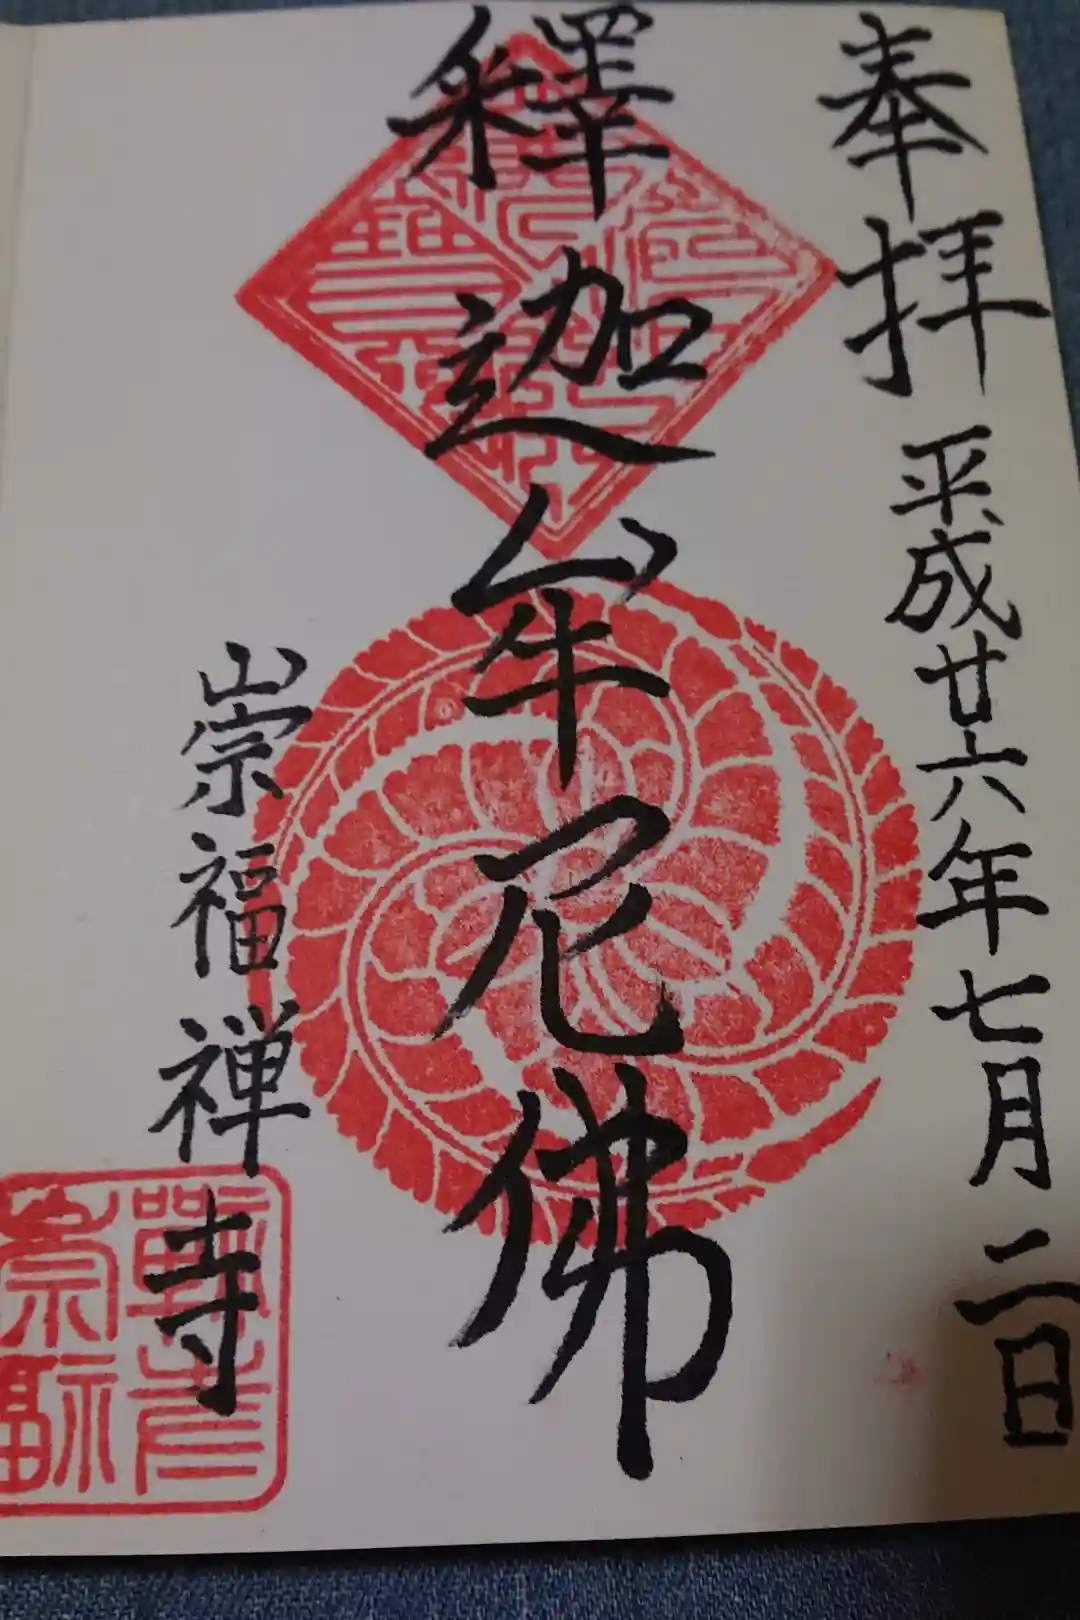 奉拝 平成廿六年七月二日
釋迦牟尼佛
崇福禅寺